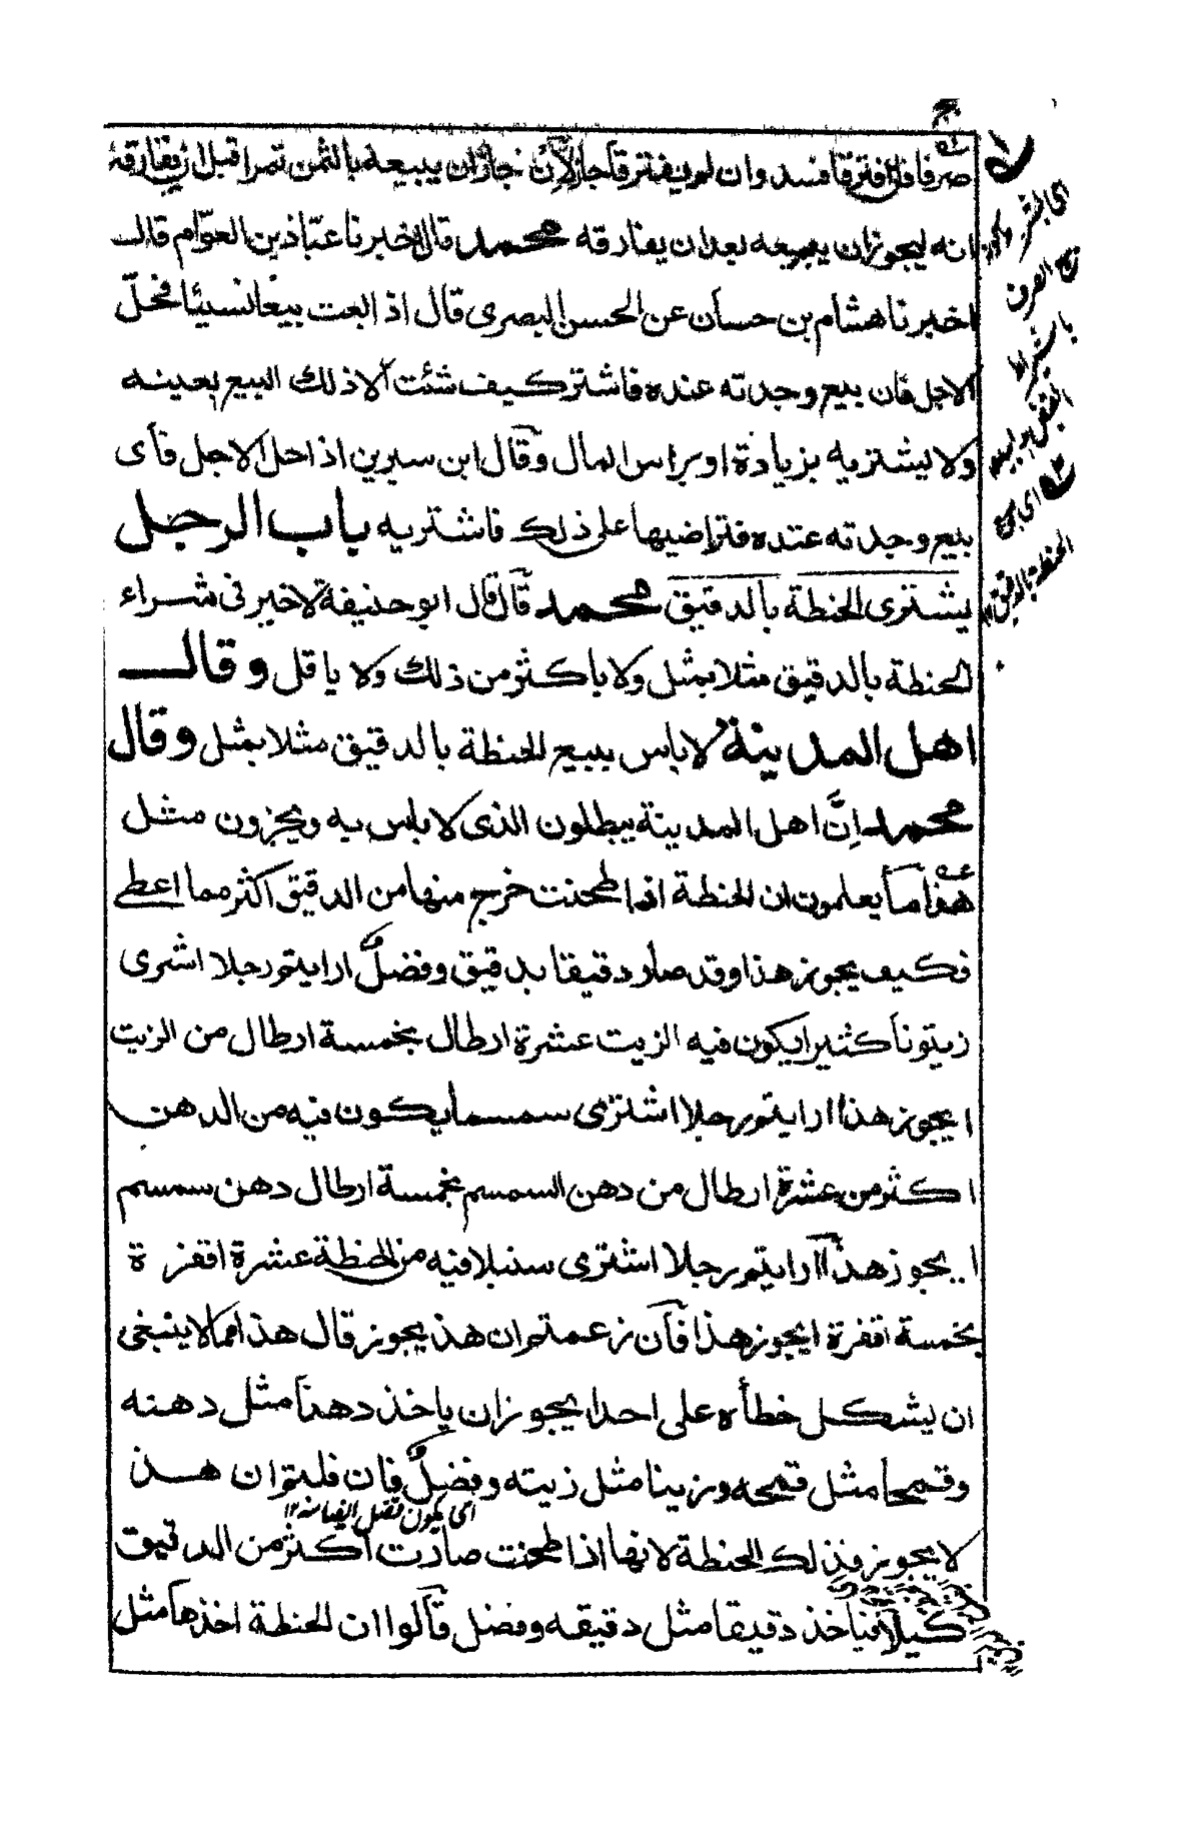 صرفا فان افترقا فسد وان لم يفترقا جاز لان جاز ان يبيعه بالثمن تمرا قبل ان يفارقه
انه ليجوز ان يبيعه بعد ان يفارقه محمد قال اخبرنا عباد بن العوام قال
اخبرنا هشام بن حسان عن الحسن البصرى قال اذا بعت بيعا نسيئا فحل
الاجل فان بيع وجدته عنده فاشتر كيف شئت الا ذلك البيع بعينه
ولا ليشتريه بزيادة او براس المال وقال ابن سيرين اذا حل الاجل فاى
بيع وجدته عنده فتراضيها على ذلك فاشتريه باب الرجل
يشترى الحنطة بالدقيق محمد قال قال ابو حنيفة لا خير فى شراء
الحنطة بالدقيق مثلا بمثل ولا باكثر من ذلك ولا باقل وقال
اهل المدينة لا باس ببيع الحنطة بالدقيق مثلا بمثل وقال
محمد اِنَّ اهل المدينة يبطلون الذى لا باس به ويجزون مثل
هذا ما يعلمون ان الحنطة اذا طحنت خرج منها من الدقيق اكثر مما اعطى
فكيف يجوز هذا وقد صار دقيقا بدقيق وفضلٌ ارايتم رجلا اشرى
زيتونا كثيرا يكون فيه الزيت عشرة ارطال بخمسة ارطال من الزيت
ايجوز هذا ارايتم رجلا اشترى سمسما يكون فيه من الدهن
اكثر من عشرة ارطال من دهن السمسم بخمسة ارطال دهن سمسم
ا يجوز هذا ارايتم رجلا اشترى سنبلا فيه من الحنطة عشرة اقفزة
بخمسة اقفزة ايجوز هذا فان زعمتم ان هذ يجوز قال هذا مما لا ينبغى
ان يشكل خطأه على احد ايجوز ان ياخذ دهنا مثل دهنه
وقمحا مثل قمحه وزيتا مثل زيته وفضلٌ فان قلتم ان هذ
اى يكون فضل ١٢
لا يجوز فذلك الحنطة لانها اذا طحنت صارت اكثر من الدقيق
كيلا فياخذ دقيقا مثل دقيقه وفضل قالوا ان الحنطة اخذها مثل
بيع الصرف
باشتراط
اى بيع
الحنطة بالدقيق